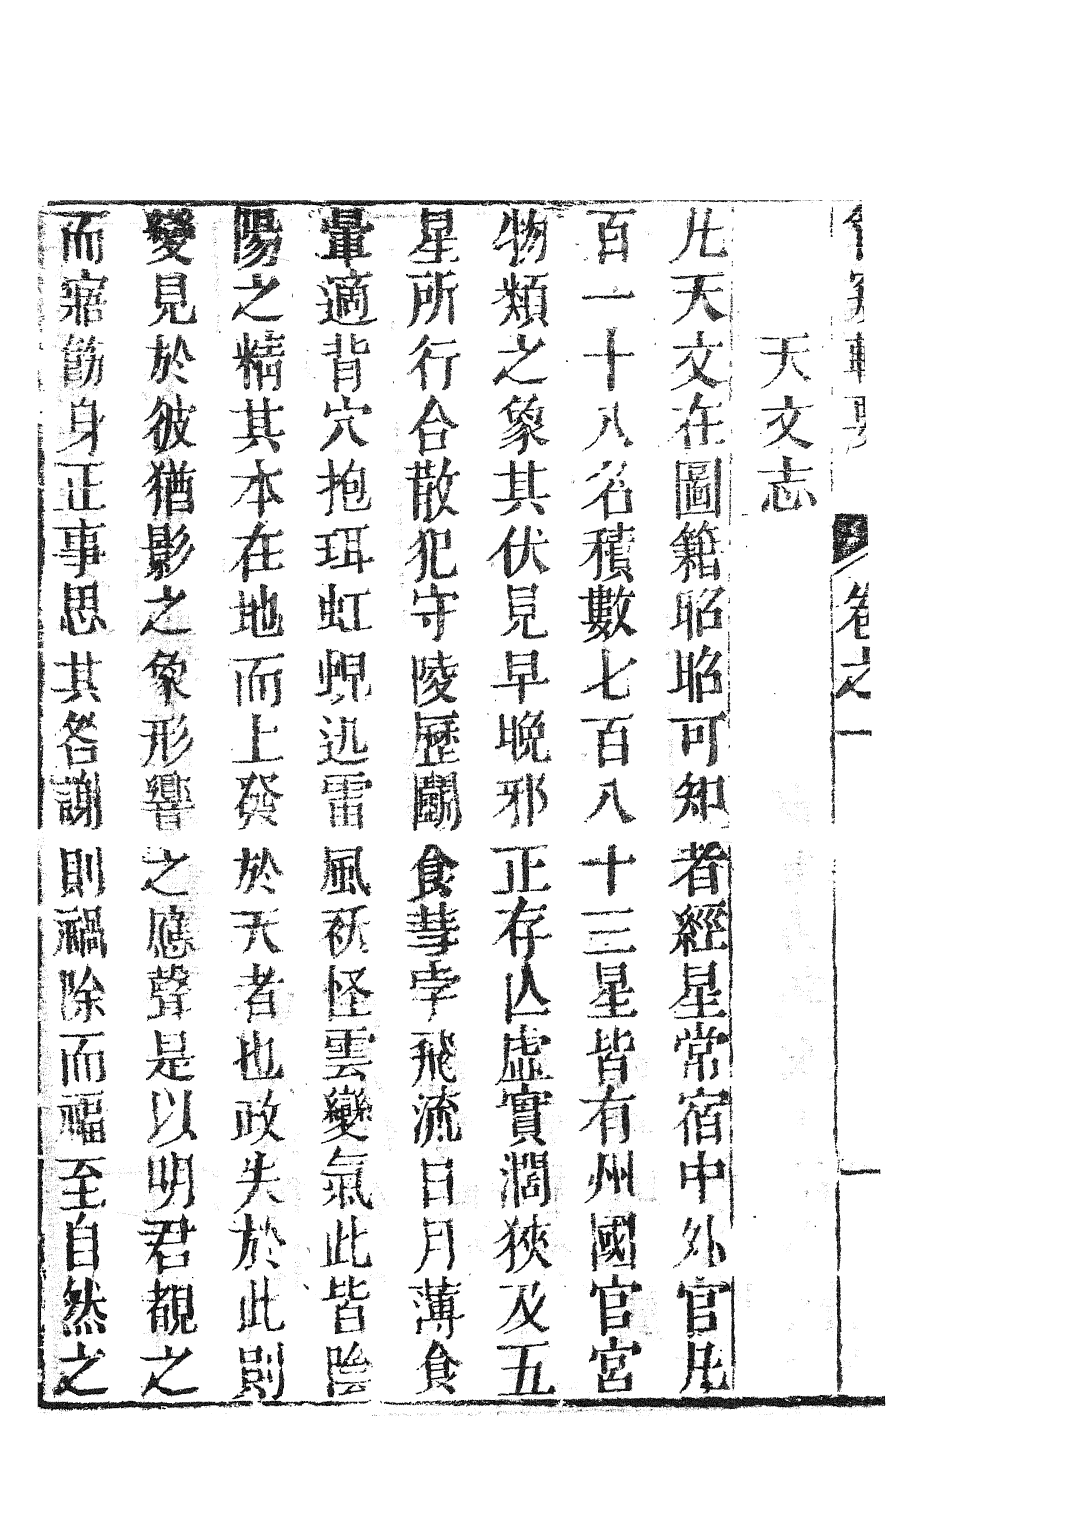 卷之一
天文志
凡天文在圖籍昭昭可知者經星常宿中外官凡
百一十八名積數七百八十三星皆有州國官宮
物類之象其伏見早晚邪正存亾虛實濶狹及五
星所行合散犯守陵歷鬭食彗孛飛流日月薄食
暈適背穴抱珥虹蜺迅雷風祅怪雲變氣此皆陰
陽之精其本在地而上發於天者也政失於此則
變見於彼猶影之象形響之應聲是以明君覩之
而寤飭身正事思其咎謝則禍除而福至自然之